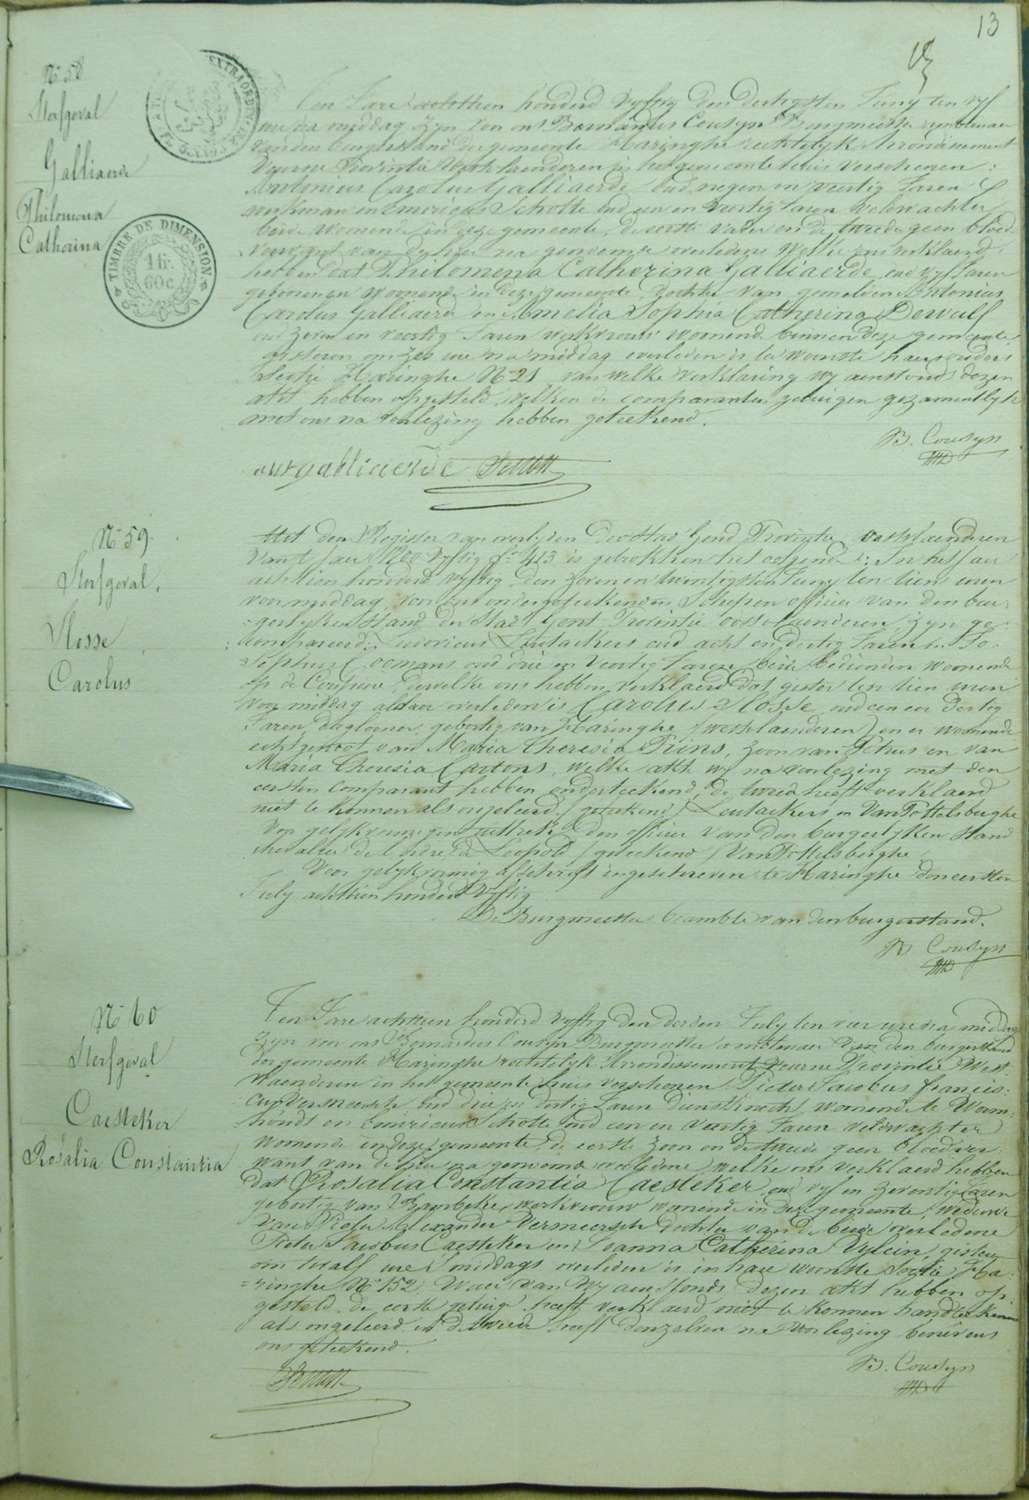 13
N° 58
Sterfgeval
Galliaerde
Philomena
Catharina
TIMBRE DE DIMENSION
46c.
60c.
Ten Jare achttien honderd vyftig den dertigsten Juny ten vyf
ure na middag zyn voor ons Bomarius Cousyn Burgmeester amptenaer
van den burgerstand der gemeente Haringhe rechtelyk Arrondissement
Veurne Provintie West Vlaenderen in het gemeente huis verschenen:
Antonius Carolus Galliaerde oud negen en veertig Jaren
werkman en Emericus Schotte oud een en veertig Jaren veldwachter
beide woonende in deze gemeente, de eerste vader en de tweede geen bloed
verwant van de hier na genoemde overledene welke ons verklaerd
hebben dat Philomena Catherina Galliaerde oud vyf Jaren
geboren en woonende in deze gemeente dochter van gemelden Antonius
Carolus Galliaerde en Amelia Sophia Catherina Dewulf
oud zeven en veertig Jaren werkvrouw woonende binnen deze gemeente
gisteren om zes ure na middag overleden is ter woonste haers ouders
Sectie Haringhe N° 21 van welke verklaring wy aenstonds dezen
akt hebben opgesteld, welken de comparanten getuigen gezamentlyk
met ons na voorlezing hebben geteekend.
B. Cousyn
galliaerde Schotte
N° 59
Sterfgeval.
Mosse
Carolus
Uit den Register van overlyden der Stad Gend Provintie oostvlaenderen
van 't jaer 1800 vyftig N° 413 is getrokken het volgende: In het jaer
achttien honderd vyftig den zeven en twintigsten Juny ten tien uren
voor middag, voor ons ondergeteekenden Schepen officier van den bur-
gerlyken Stand der Stad Gent Provintie oostvlaenderen zyn ge-
compareerd Ludovicus Loutackers oud acht en dertig Jaren en Jo-
sephus Coomans oud drie en veertig Jaren, beide bedienden woonende
op de Coupure, dewelke ons hebben verklaerd dat gister ten tien uren
voor middag aldaer overleden is Carolus Mosse oud een en dertig
Jaren, daglooner, geboortig van Haringhe (westvlaenderen) en er woonende
echtgenoot van Maria Theresia Prins, zoon van Petrus en van
Maria Theresia Cartons, welke akte wy na voorlezing met den
eersten comparant hebben onderteekend, de tweede heeft verklaerd
niet te konnen als ongeleerd (geteekend) Loutackers en VanPottelsberghe
Voor gelykvormig uittreksel den officier van den burgerlyken Stand
chevalier de l'ordre de Leopold (geteekend) VanPottelsberghe
Voor gelykvormig afschrift ingeschreven te Haringhe den eersten
July achttien honderd vyftig
De Burgmeester beambte van den burgerstand.
B Cousyn
N° 60
Sterfgeval
Caesteker
Rosalia Constantia
Ten Jare achttien honderd vyftig den derden July ten vier ure na middag
zyn voor ons Bomarius Cousyn Burgmeester amptenaer van den burgerstand
der gemeente Haringhe rechtelyk Arrondissement Veurne Provintie West
Vlaenderen in het gemeente huis verschenen Pieter Jacobus Francis-
cus Vermeersch, oud drie en dertig Jaren dienstknecht woonende te Worm-
houdt en Emericus Schotte oud een en veertig Jaren veldwachter
woonende in deze gemeente, de eerste zoon en de tweede geen bloedver
want van de hier na genoemde overledene welke ons verklaerd hebben
dat Rosalia Constantia Caesteker oud vyf en zeventig Jaren
geboortig van Bambeke werkvrouw woonende in deze gemeente, weduwe
van Pieter Alexander Vermeersch dochter van de beide overledene
Pieter Jacobus Caesteker en Joanna Catherina Vylein gisteren
om twalf ure 's middags overleden is in hare woonste Sectie Ha-
ringhe N° 152, waer van wy aenstonds dezen akt hebben op-
gesteld, de eerste getuige heeft verklaerd niet te konnen handteekenen
als ongeleerd en de tweede heeft denzelven na voorlezing benevens
ons geteekend.
B. Cousyn
Schotte